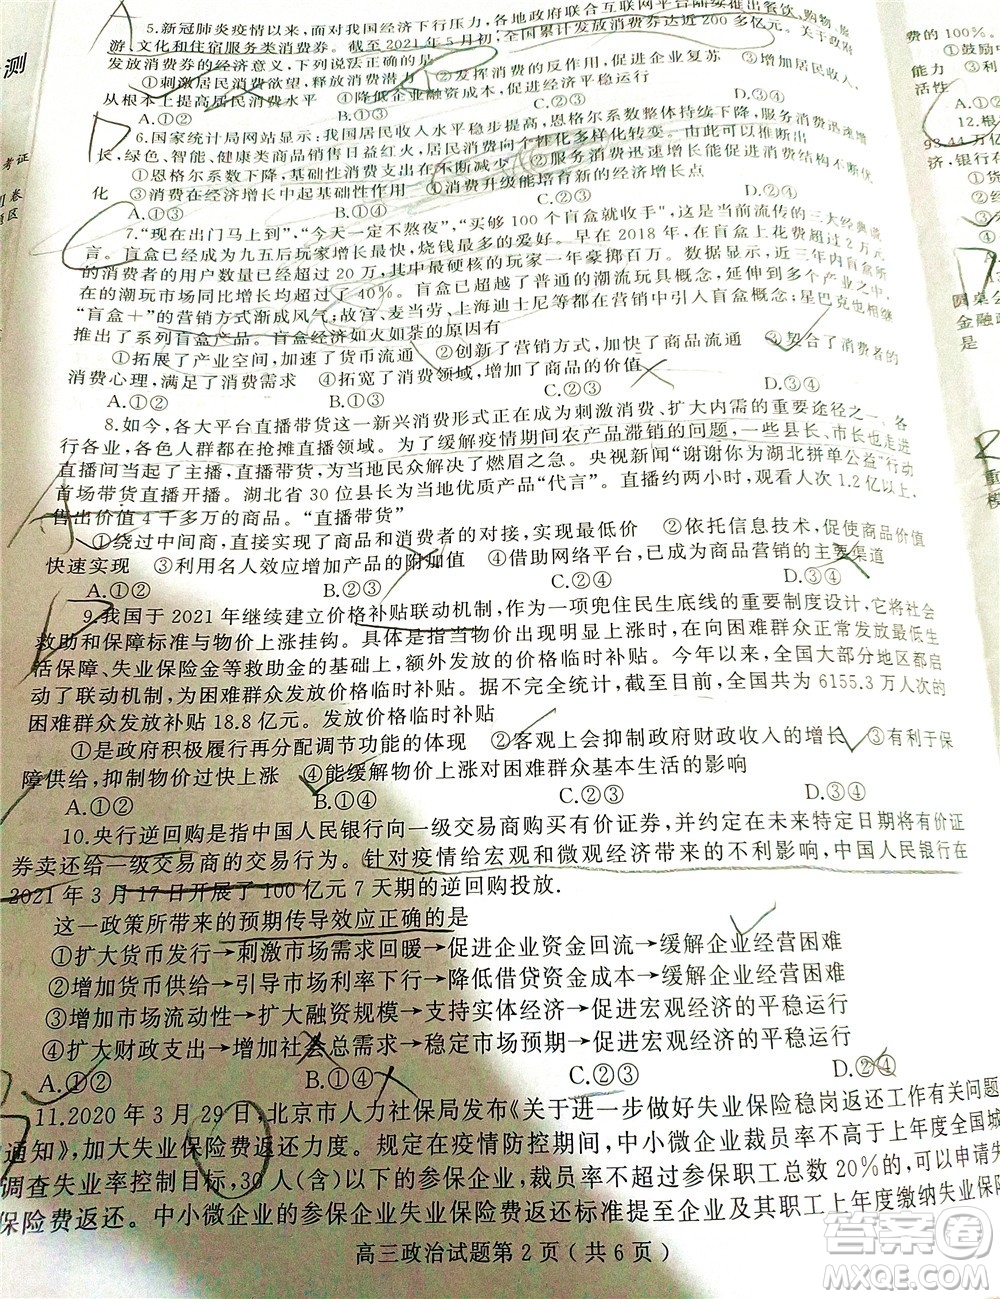 5.新冠肺炎疫情以来,面对我国经济下行压力,各地政府联合互联网平台陆续推出餐饮、购物、旅
游、文化和住宿服务类消费券。截至2021年5月初,全国累计发放消费券达近200多亿元。关于政府
发放消费券的经济意义,下列说法正确的是
①刺激居民消费欲望,释放消费潜力 ②发挥消费的反作用,促进企业复苏 ③增加居民收入,
从根本上提高居民消费水平 ④降低企业融资成本,促进经济平稳运行
A.①② B.①③ C.②④ D.③④
6.国家统计局网站显示:我国居民收入水平稳步提高,恩格尔系数整体持续下降,服务消费迅速增
长,绿色、智能、健康类商品销售日益红火,居民消费向个性化多样化转变。由此可以推断出
①恩格尔系数下降,基础性消费支出在不断减少 ②服务消费迅速增长促进消费结构不断优
化 ③消费在经济增长中起基础性作用 ④消费升级能培育新的经济增长点
A.①③ B.①④ C.②③ D.②④
7.“现在出门马上到”,“今天一定不熬夜”,“买够100个盲盒就收手”,这是当前流传的三大经典谎
言。盲盒已经成为九五后玩家增长最多,烧钱最多的爱好。早在2018年,在盲盒上花费超过2万元
的消费者的用户数量已经超过20万,其中最硬核的玩家一年豪掷百万。数据显示,近三年内盲盒所
在的潮玩市场同比增长超过了40%。盲盒已从普通的潮流玩具消费领域,延伸到更多消费领域,
“盲盒+”的营销方式渐成风气;故宫、麦当劳、上海迪士尼等在营销中引入盲盒概念;星巴克也相继
推出了系列盲盒产品。盲盒经济如火如荼的原因有
①拓展了产业空间,加速了货币流通 ②创新了营销方式,加快了商品流通 ③契合了消费者的
消费心理,满足了消费需求 ④拓宽了消费领域,增加了商品的价值
A.①② B.①④ C.②③ D.③④
8.如今,各大平台直播带货这一新兴消费形式正在成为刺激消费、扩大内需的重要途径之一,各
行各业,各色人群都在抢摊直播领域。为了缓解疫情期间农产品滞销的问题,一些县长、市长也走进
直播间当起了主播,直播带货,为当地民众解决了燃眉之急。央视新闻“谢谢你为湖北拼单公益”行动
首场带货直播开播。湖北省30位县长为当地优质产品“代言”。直播约两小时,观看人次1.2亿以上,
售出价值4千多万的商品。“直播带货”
①绕过中间商,直接实现了商品和消费者的对接,实现最低价 ②依托信息技术,促使商品价值
快速实现 ③利用名人效应增加产品的附加值 ④借助网络平台,已成为商品营销的主要渠道
A.①② B.②③ C.②④ D.③④
9.我国于2021年继续建立价格补贴联动机制,作为一项兜住民生底线的重要制度设计,它将社会
救助和保障标准与物价上涨挂钩。具体是指当物价出现明显上涨时,在向困难群众正常发放最低生
活保障、失业保险金等救助金的基础上,额外发放价格临时补贴。今年以来,全国大部分地区都启
动了联动机制,为困难群众发放价格临时补贴。据不完全统计,截至目前,全国共为6155.3万人次的
困难群众发放补贴18.8亿元。发放价格临时补贴
①是政府积极履行再分配调节功能的体现 ②客观上会抑制政府财政收入的增长 ③有利于保
障供给,抑制物价过快上涨 ④能缓解物价上涨对困难群众基本生活的影响
A.①② B.①④ C.②③ D.③④
10.央行逆回购是指中国人民银行向一级交易商购买有价证券,并约定在未来特定日期将有价证
券卖还给一级交易商的交易行为。针对疫情给宏观和微观经济带来的不利影响,中国人民银行在
2021年3月17日开展了100亿元7天期的逆回购投放.
这一政策所带来的预期传导效应正确的是
①扩大货币发行→刺激市场需求回暖→促进企业资金回流→缓解企业经营困难
②增加货币供给→引导市场利率下行→降低借贷资金成本→缓解企业经营困难
③增加市场流动性→扩大融资规模→支持实体经济→促进宏观经济的平稳运行
④扩大财政支出→增加社会总需求→稳定市场预期→促进宏观经济的平稳运行
A.①② B.①④ C.②③ D.②④
11.2020年3月29日,北京市人力社保局发布《关于进一步做好失业保险稳岗返还工作有关问题
通知》,加大失业保险费返还力度。规定在疫情防控期间,中小微企业裁员率不高于上年度全国城
调查失业率控制目标,30人(含)以下的参保企业,裁员率不超过参保职工总数20%的,可以申请失
保险费返还。中小微企业的参保企业失业保险费返还标准提至企业及其职工上年度缴纳失业保险
高三政治试题第2页(共6页)
测
考证
卷
费的100%。
①鼓励
能力
活性
A.①②
12.根
93.44万亿
济,银行存
圆桌公
金融政
是
重
模
答案圈
MXQE.COM